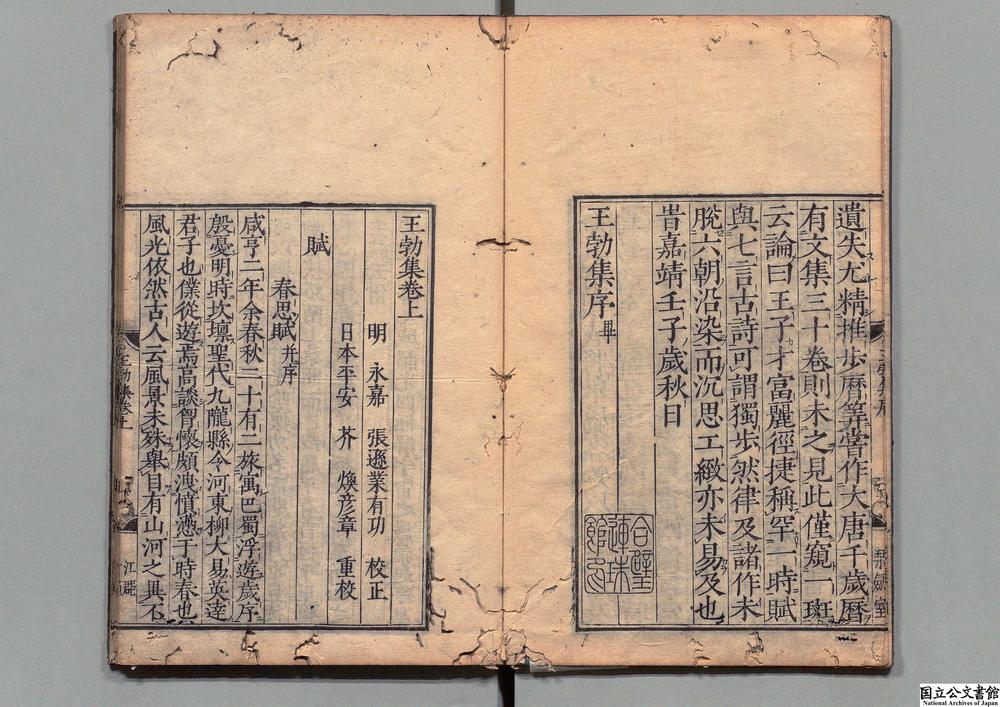 遺失尤精推步曆筭嘗作大唐千歲曆
有文集三十卷則未之見此僅窺一斑
云論曰王子才富麗徑捷稱罕一時賦
與七言古詩可謂獨步然律及諸作未
脫六朝沿染而沉思工緻亦未易及也
旹嘉靖壬子歲秋日
王勃集序畢
王勃集卷上
明 永嘉 張遜業有功 校正
日本平安 芥 煥彦章 重校
賦
春思賦并序
咸亨二年余春秋二十有二旅寓巴蜀浮遊歲序
殷憂明時坎壈聖代九隴縣令河東柳大易英達
君子也僕從遊焉高談胷懷頗洩憤懣于時春也
風光依然古人云風景未殊舉目有山河之異不
国立公文書館
National Archives of Japan